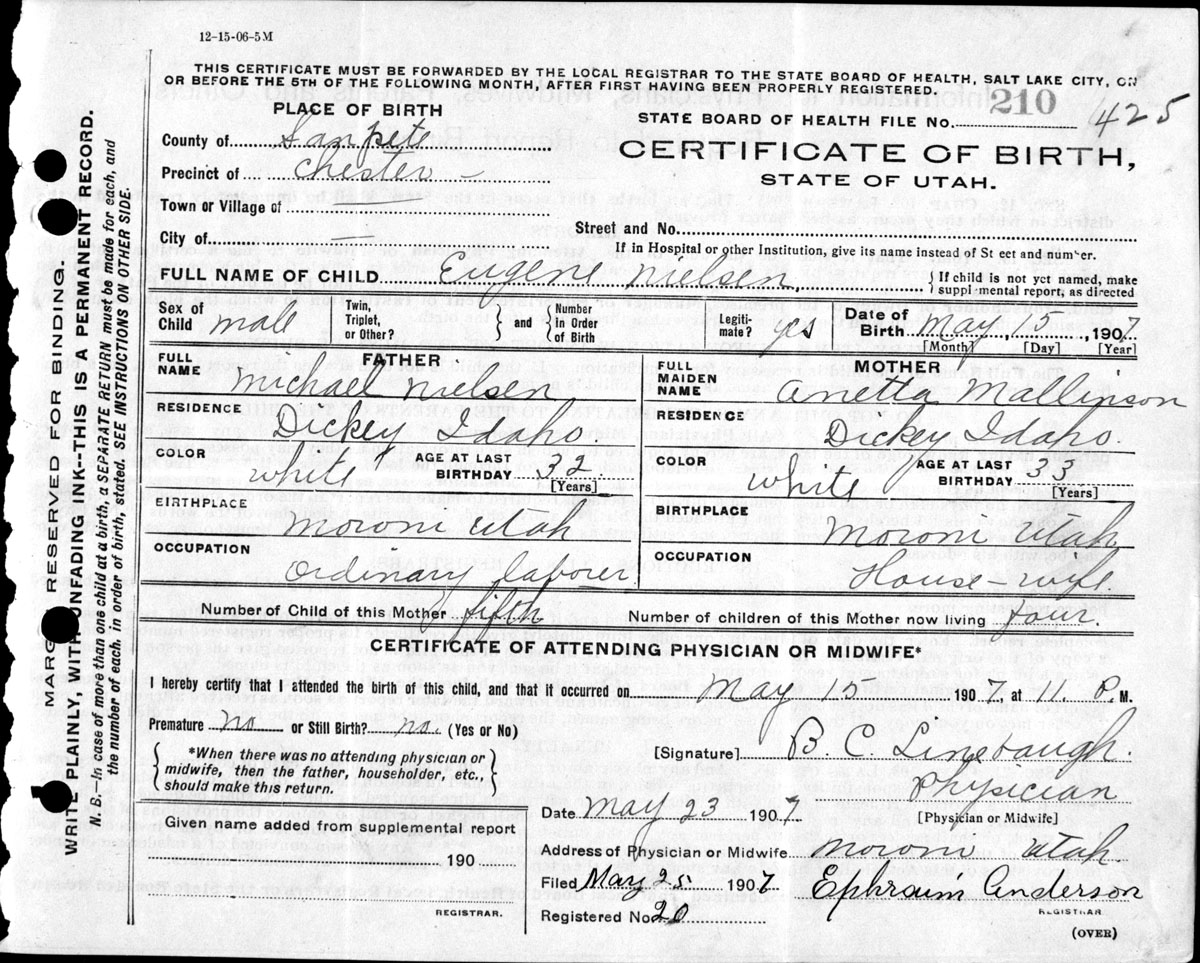 12-15-06-5M
THIS CERTIFICATE MUST BE FORWARDED BY THE LOCAL REGISTRAR TO THE STATE BOARD OF HEALTH, SALT LAKE CITY, ON
OR BEFORE THE 5TH OF THE FOLLOWING MONTH, AFTER FIRST HAVING BEEN PROPERLY REGISTERED.
PLACE OF BIRTH
STATE BOARD OF HEALTH FILE No. 210 425
County of Sanpete
CERTIFICATE OF BIRTH,
Precinct of Chester —
STATE OF UTAH.
Town or Village of —
Street and No.
City of —
If in Hospital or other Institution, give its name instead of St eet and number.
FULL NAME OF CHILD Eugene Nielsen
{ If child is not yet named, make
suppl mental report, as directed
Sex of Child male
Twin, Triplet, or Other? } and { Number in Order of Birth
Legiti-mate? yes
Date of Birth May 15, 1907
[Month] [Day] [Year]
FATHER
FULL NAME Michael Nielsen
RESIDENCE Dickey Idaho
COLOR White AGE AT LAST BIRTHDAY 32 [Years]
BIRTHPLACE Moroni Utah
OCCUPATION Ordinary labourer
MOTHER
FULL MAIDEN NAME Anetta Mallinson
RESIDENCE Dickey Idaho.
COLOR White AGE AT LAST BIRTHDAY 33 [Years]
BIRTHPLACE Moroni Utah
OCCUPATION House-wife.
Number of Child of this Mother fifth Number of children of this Mother now living four.
CERTIFICATE OF ATTENDING PHYSICIAN OR MIDWIFE*
I hereby certify that I attended the birth of this child, and that it occurred on May 15 1907 at 11. P. M.
Premature no or Still Birth? no. (Yes or No)
{ *When there was no attending physician or
midwife, then the father, householder, etc.,
should make this return. }
[Signature] B. C. Linebaugh.
Physician
Date May 23 1907
[Physician or Midwife]
Given name added from supplemental report
190
REGISTRAR.
Address of Physician or Midwife Moroni Utah.
Filed May 25 1907 Ephraim Anderson
REGISTRAR
Registered No. 20
(OVER)
MARGIN RESERVED FOR BINDING.
WRITE PLAINLY, WITH UNFADING INK--THIS IS A PERMANENT RECORD.
N. B.—In case of more than one child at a birth, a SEPARATE RETURN must be made for each, and
the number of each, in order of birth, stated. SEE INSTRUCTIONS ON OTHER SIDE.